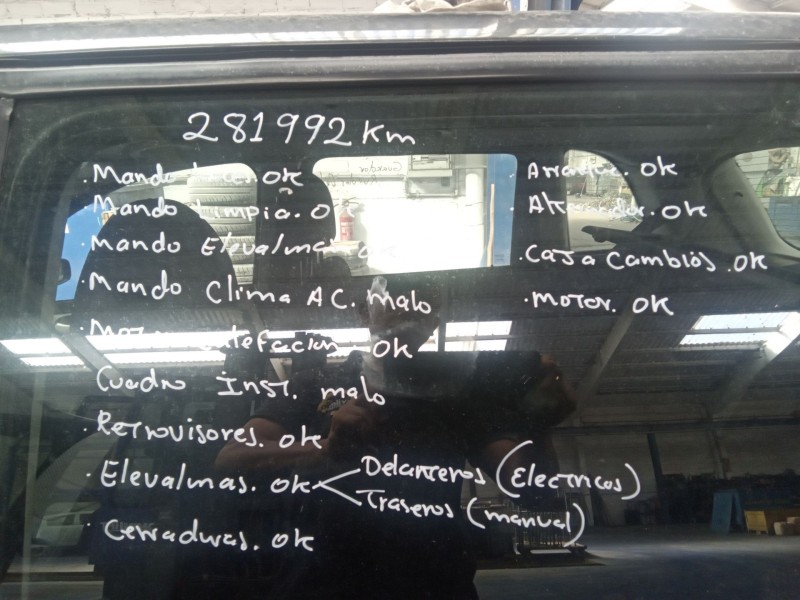 281992 Km
. Mando Luces OK
. Mando Limpia. OK
. Mando Elevalunas OK
. Mando Clima AC. malo
. Motor Calefacion. OK
Cuadro Inst. malo
. Retrovisores. OK
. Elevalunas. OK
Delanteros (Electricos)
Traseros (manual)
. Cerraduras. OK
. Arranque. OK
. Alternador. OK
. Caja Cambios. OK
. Motor. OK